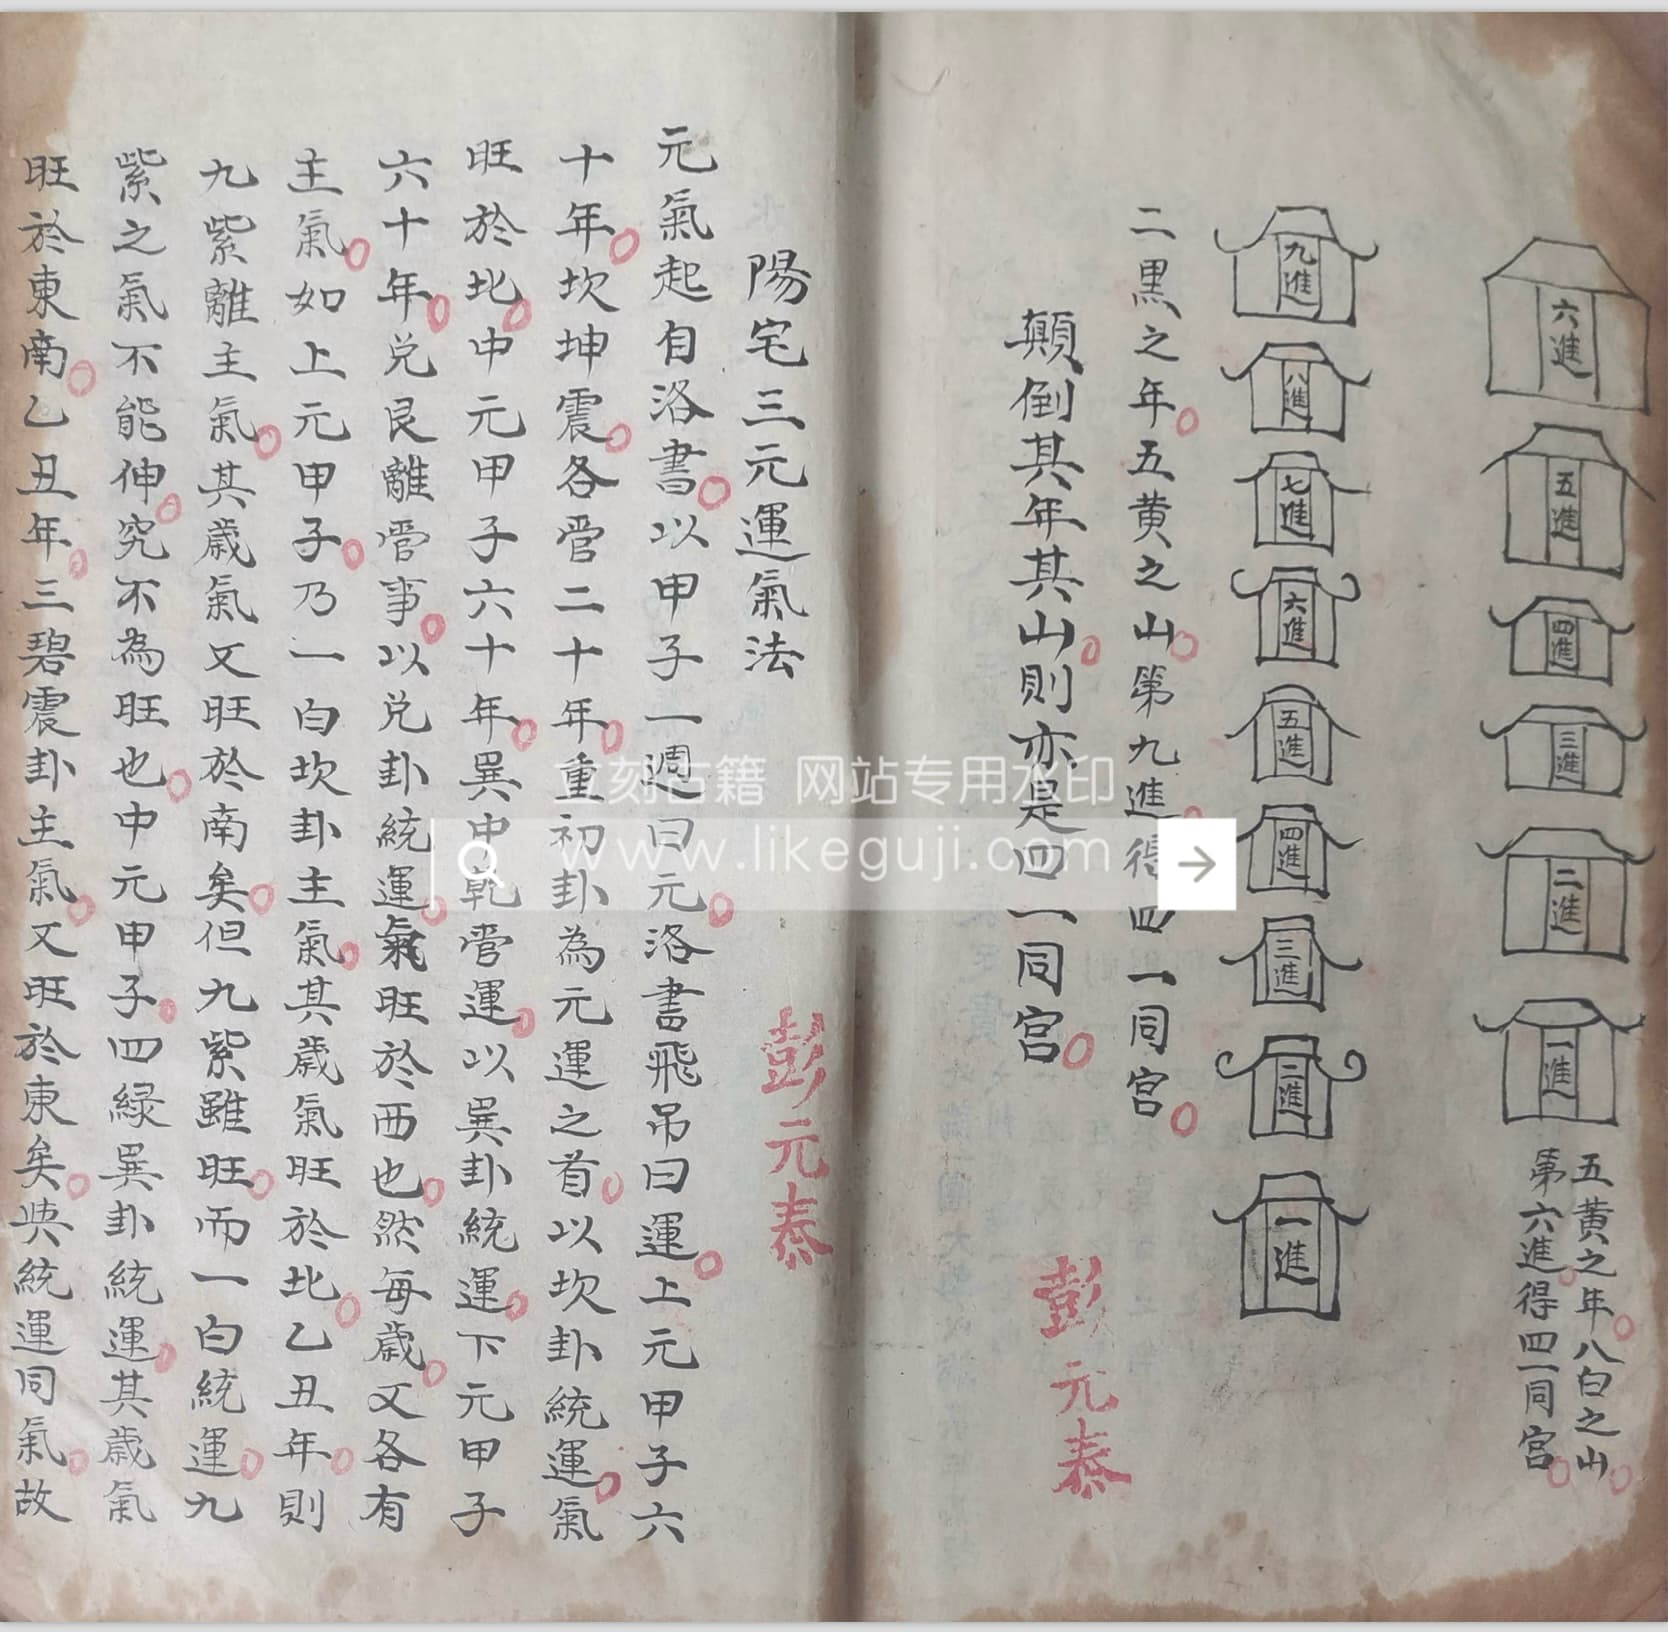 六進
五進
四進
三進
二進
一進
五黄之年八白之山
第六進得四一同宮
九進
八進
七進
六進
五進
四進
三進
二進
一進
二黑之年五黄之山第九進得四一同宮
顛倒其年其山則亦是四一同宮
彭元泰
陽宅三元運氣法
彭元泰
元氣起自洛書以甲子一週曰元洛書飛吊曰運上元甲子六
十年坎坤震各管二十年重初卦為元運之首以坎卦統運氣
旺於北中元甲子六十年巽中乾管運以巽卦統運下元甲子
六十年兑艮離管事以兑卦統運氣旺於西也然每歲又各有
主氣如上元甲子乃一白坎卦主氣其歲氣旺於北乙丑年則
九紫離主氣其歲氣又旺於南矣但九紫雖旺而一白統運九
紫之氣不能伸究不為旺也中元甲子四緑巽卦統運其歲氣
旺於東南乙丑年三碧震卦主氣又旺於東矣與統運同氣故
立刻古籍 网站专用水印
www.likeguji.com